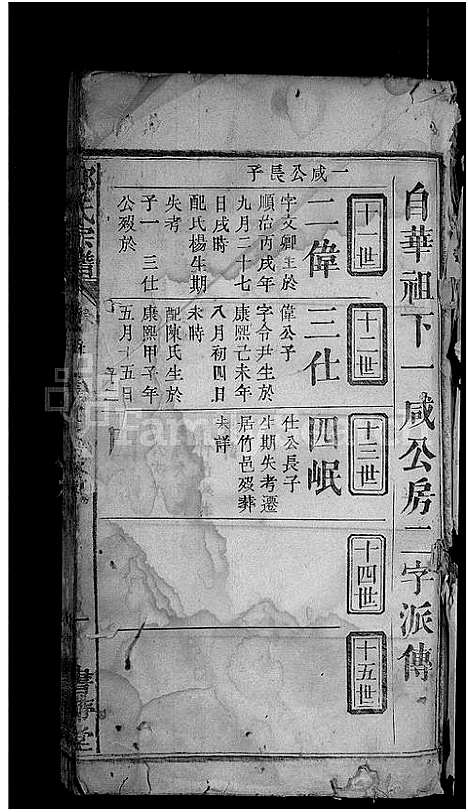 自華祖下一咸公房二字派傳
十一世
十二世
十三世
十四世
十五世
一咸公長子
二偉
字文卿生於
順治丙戌年
九月二十七
日戌時
配氏楊生期
失考
子一 三仕
公歿於
三仕
偉公子
字令尹生於
康熙己未年
八月初四日
未時
配陳氏生於
康熙甲子年
五月十五日
子二
四岷
仕公長子
生期失考遷
居竹邑歿葬
未詳
氏宗譜
堂